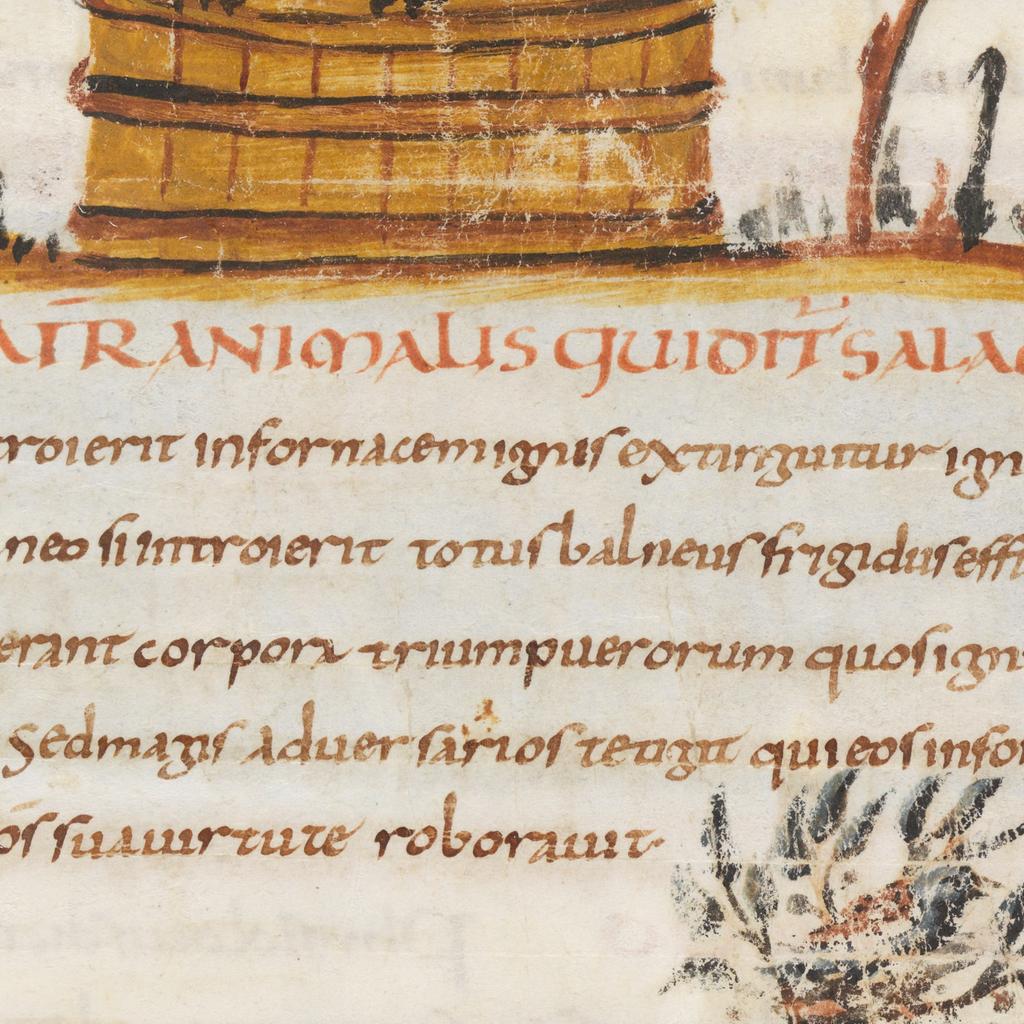 ATR ANIMALIS QUI DIT̅ SALA
troierit infornacem ignis extinguitur ign
neo si introierit totus balneus frigidus effi
erant corpora trium puerorum quos ign
Sed magis adversarios tetigit qui eos infor
os sua virtute roboravit·